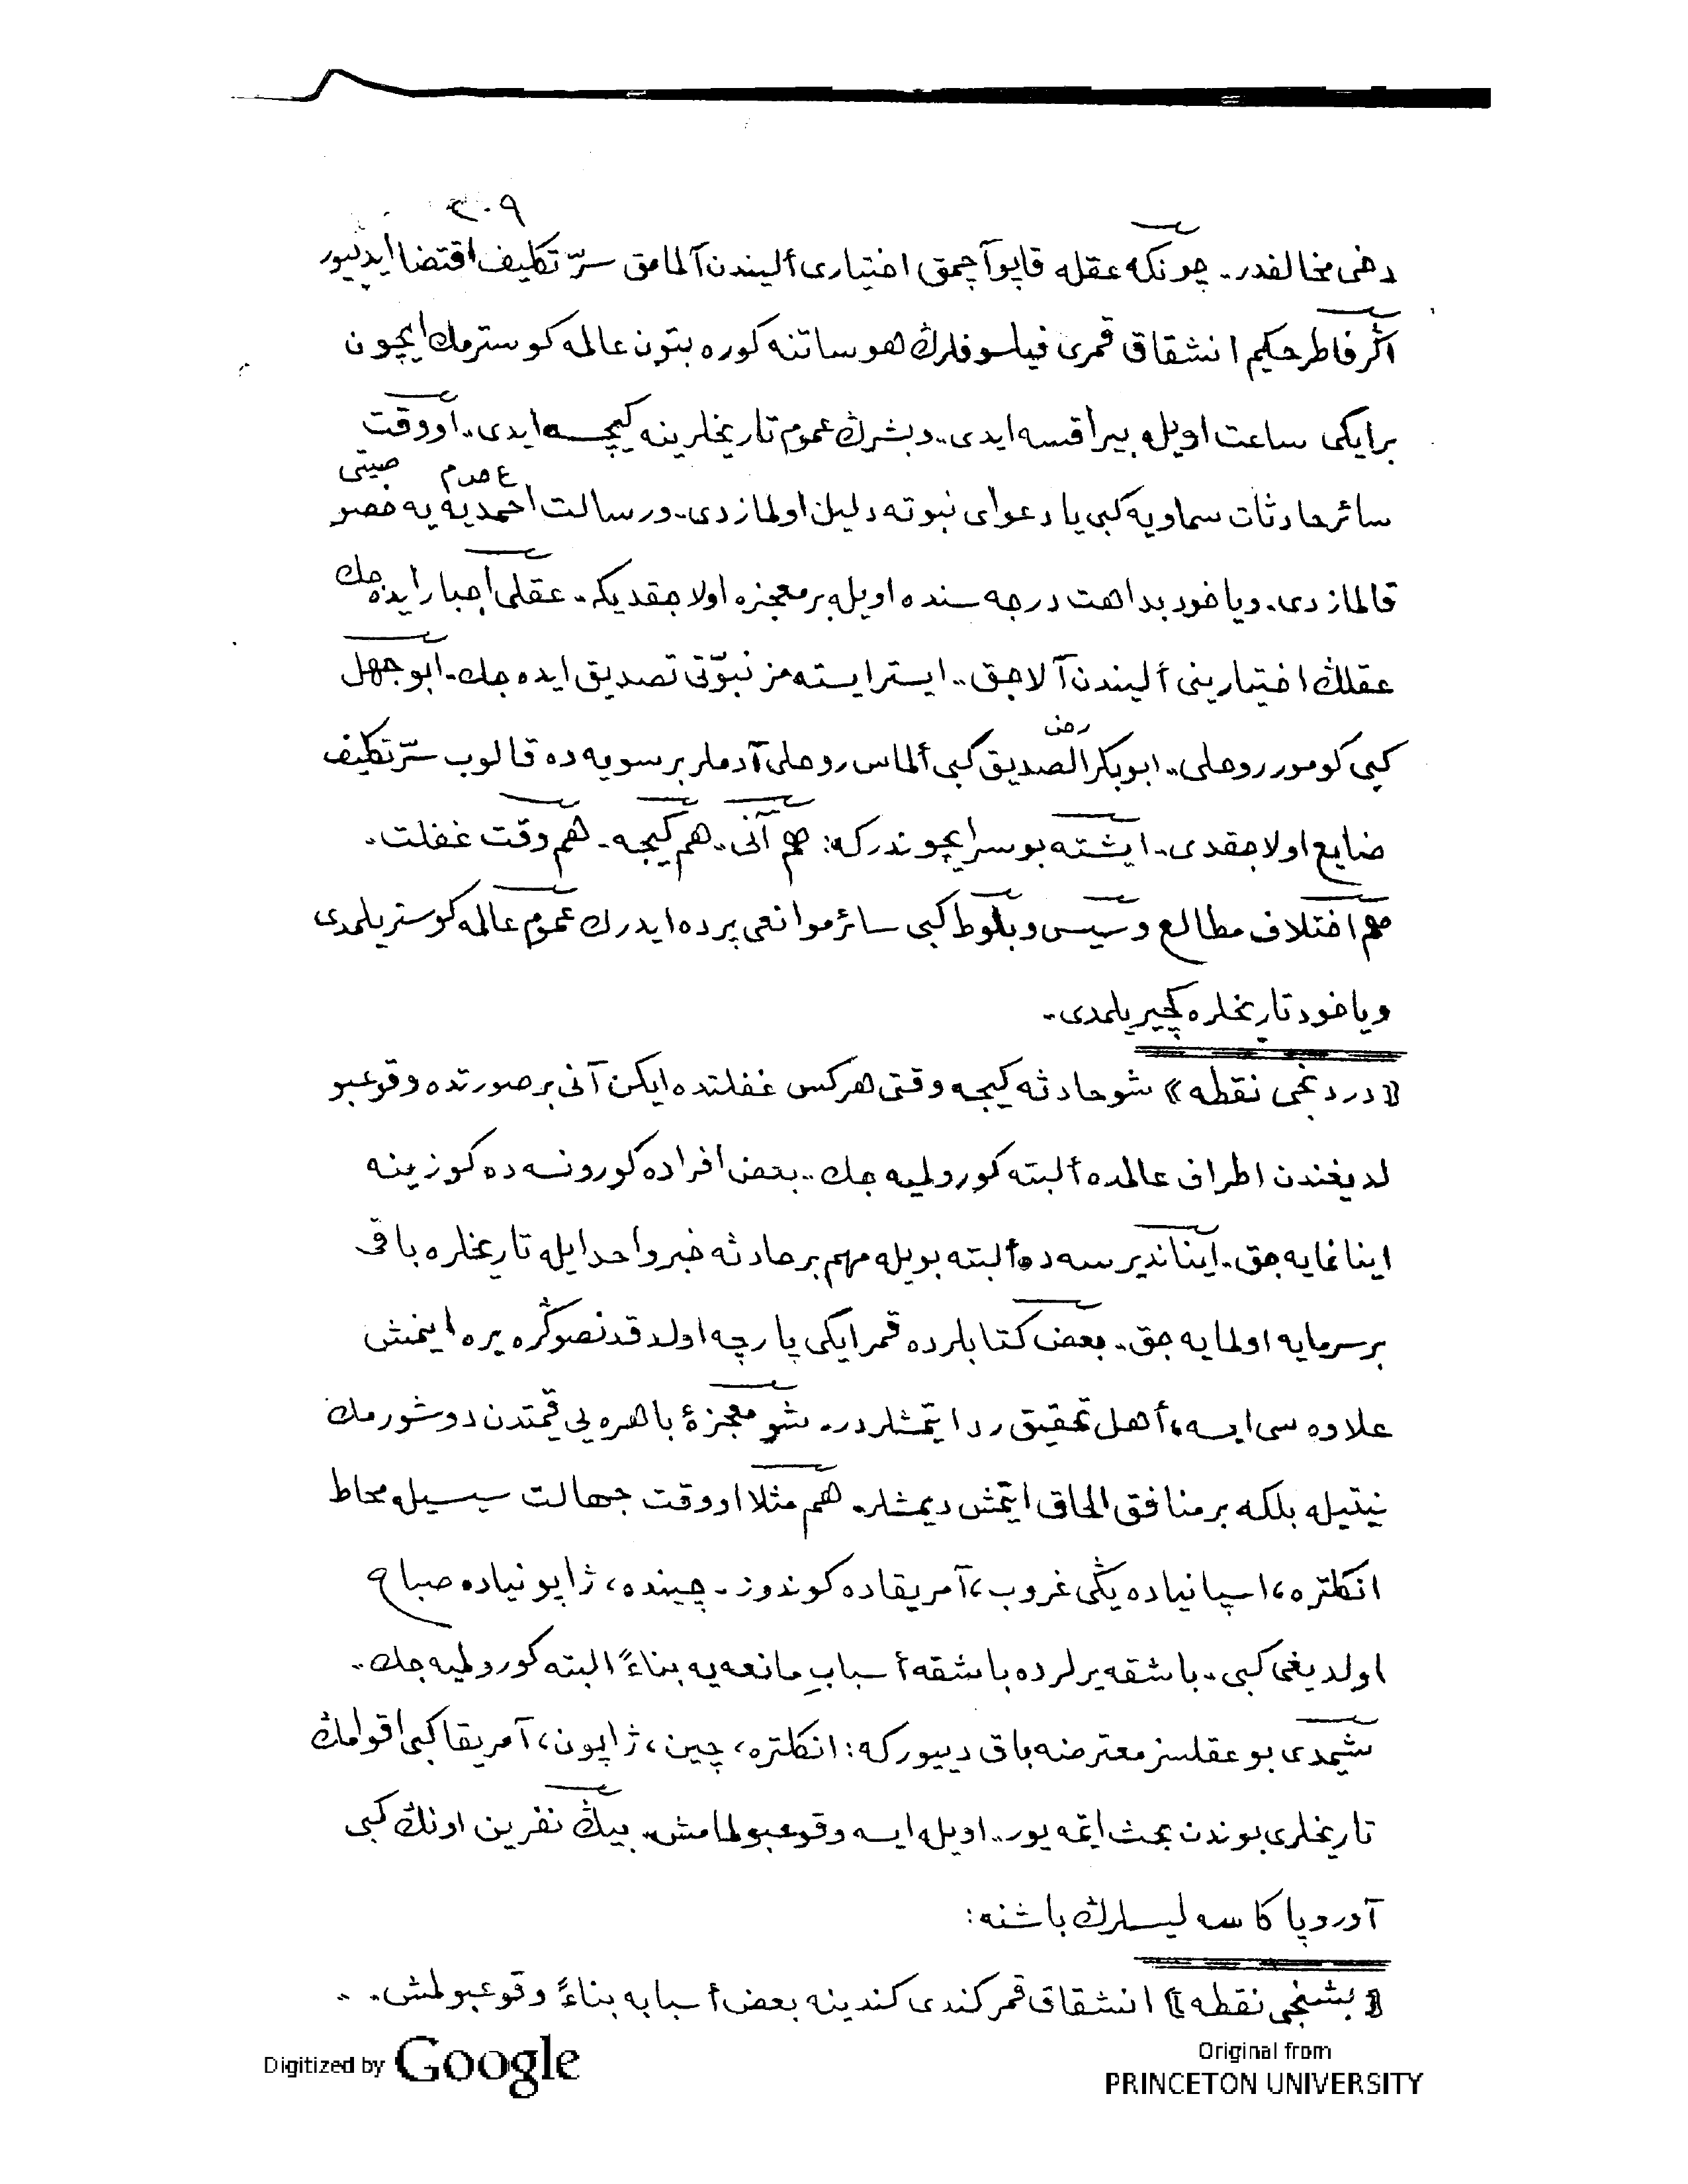 ٣٠٩
دخى مخالفدر.. چونكه عقله قاپو آچمق اختيارى ألیندن آلمامق سرّ تكليف اقتضا ايديیور
اگر فاطر حكيم انشقاق قمرى فيلسوفلرڭ هوساتنه كوره بتون عالمه كوسترمك ايچون
برايكى ساعت اويله بيراقسه ايدى.. وبشرڭ عموم تاريخلرينه كيچسه ايدى.. او وقت
سائر حادثات سماويه كبى يا دعواى نبوته دليل اولمازدى.. ورسالت احمديه يه خصو
ع ص م
صيتى
قالمازدى. وياخود بداهت درجه سنده اويله بر معجزه اولاجقديكه.. عقلى اجبار ايده جك
عقلڭ اختيارينى ألیندن آلاجق.. ايستر ايسته مز نبوّتى تصديق ايده جك.. ابوجهل
كبى كومور روحلى.. ابوبكر الصديق كبى ألماس روحلى آدملر بر سويه ده قالوب سرّ تكليف
رض
ضايع اولاجقدى.. ايشته بو سر ايچوندركه: هم آنى.. هم كيجه.. هم وقت غفلت..
هم اختلاف مطالع وسيس وبلوط كبى سائر موانعى پرده ايدرك عموم عالمه كوستريلمدى
وياخود تاريخلره كچيريلمدى..
﴿دردنجى نقطه﴾ شو حادثه كيجه وقتى هركس غفلتده ايكن آنى بر صورتده وقوعبو
لديغندن اطراف عالمده ألبته كورولميه جك.. بعض افراده كورونسه ده كوزينه
اينانمايه جق.. ايناندير سه ده ألبته بويله مهم بر حادثه خبر واحد ايله تاريخلره باقى
بر سرمايه اولمايه جق.. بعض كتابلرده قمر ايكى پارچه اولدقدنصوڭره يره اينمش
علاوه سى ايسه، أهل تحقيق رد ايتمشلردر.. شو معجزۀ باهره يى قيمتدن دوشورمك
نيتيله بلكه بر منافق الحاق ايتمش ديمشلر. هم مثلا او وقت جهالت سيسيله محاط
انكلتره، اسپانياده يڭى غروب، آمريقاده كوندوز.. چينده، ژاپونياده صباح
اولديغى كبى.. باشقه يرلرده باشقه أسباب مانعه يه بناءً البته كورولميه جك..
شيمدى بو عقلسز معترضه باق دييوركه: انكلتره، چين، ژاپون، آمريقا كبى اقوامڭ
تاريخلرى بوندن بحث ايتمه يور.. اويله ايسه وقوعبولمامش.. بيڭ نفرين اونڭ كبى
آوروپا كاسه ليسلرڭ باشنه:
﴿بشنجى نقطه﴾ انشقاق قمر كندى كندينه بعض أسبابه بناءً وقوعبولمش.. ..
Digitized by Google
Original from
PRINCETON UNIVERSITY